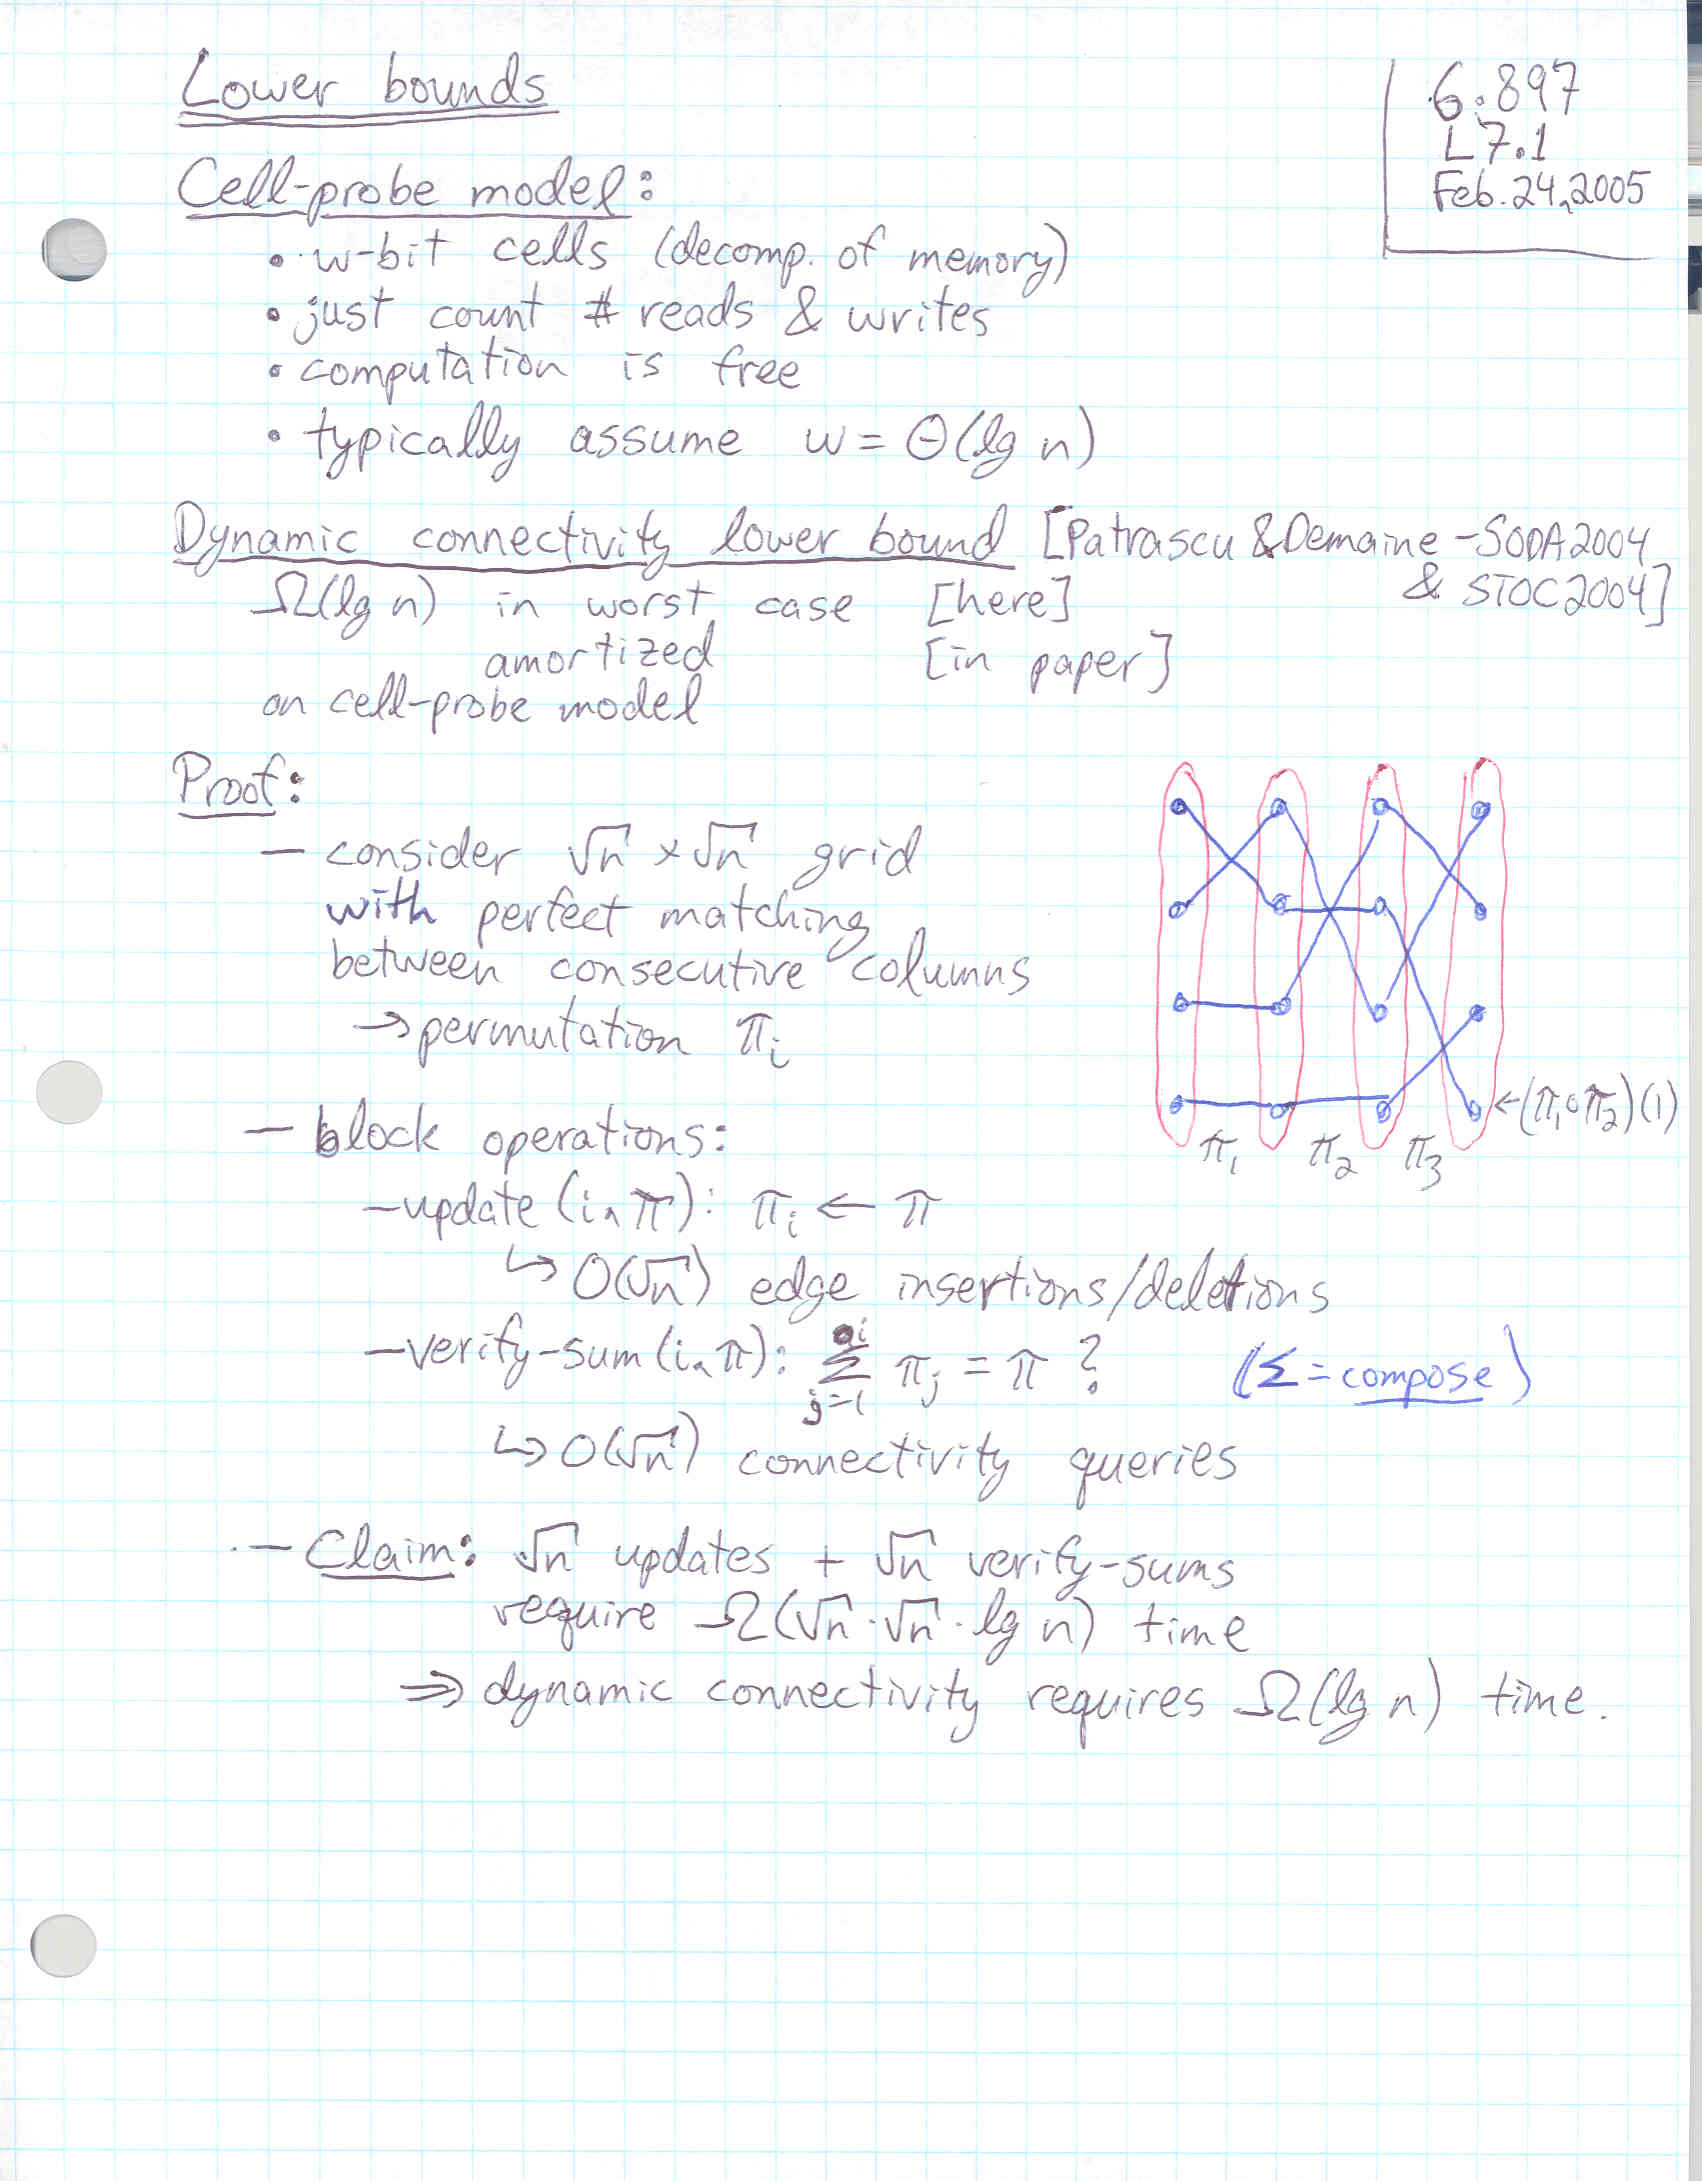 Lower bounds
6.897
L7.1
Feb. 24, 2005
Cell-probe model:
• w-bit cells (decomp. of memory)
• just count # reads & writes
• computation is free
• typically assume w = Θ(lg n)
Dynamic connectivity lower bound [Patrascu & Demaine - SODA 2004
& STOC 2004]
Ω(lg n) in worst case [here]
amortized [in paper]
on cell-probe model
Proof:
— consider √n × √n grid
with perfect matching
between consecutive columns
→ permutation πᵢ
←(π₁∘π₂)(1)
π₁ π₂ π₃
— block operations:
— update (i, π): πᵢ ← π
↳ O(√n) edge insertions/deletions
— verify-sum (i, π): Σⁱⱼ₌₁ πⱼ = π ? (Σ = compose)
↳ O(√n) connectivity queries
— Claim: √n updates + √n verify-sums
require Ω(√n · √n · lg n) time
⇒ dynamic connectivity requires Ω(lg n) time.